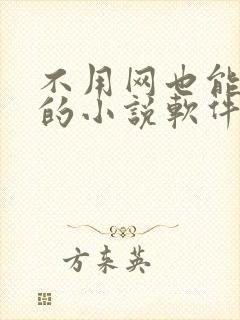 不用网也能
的小説軟件
方东英